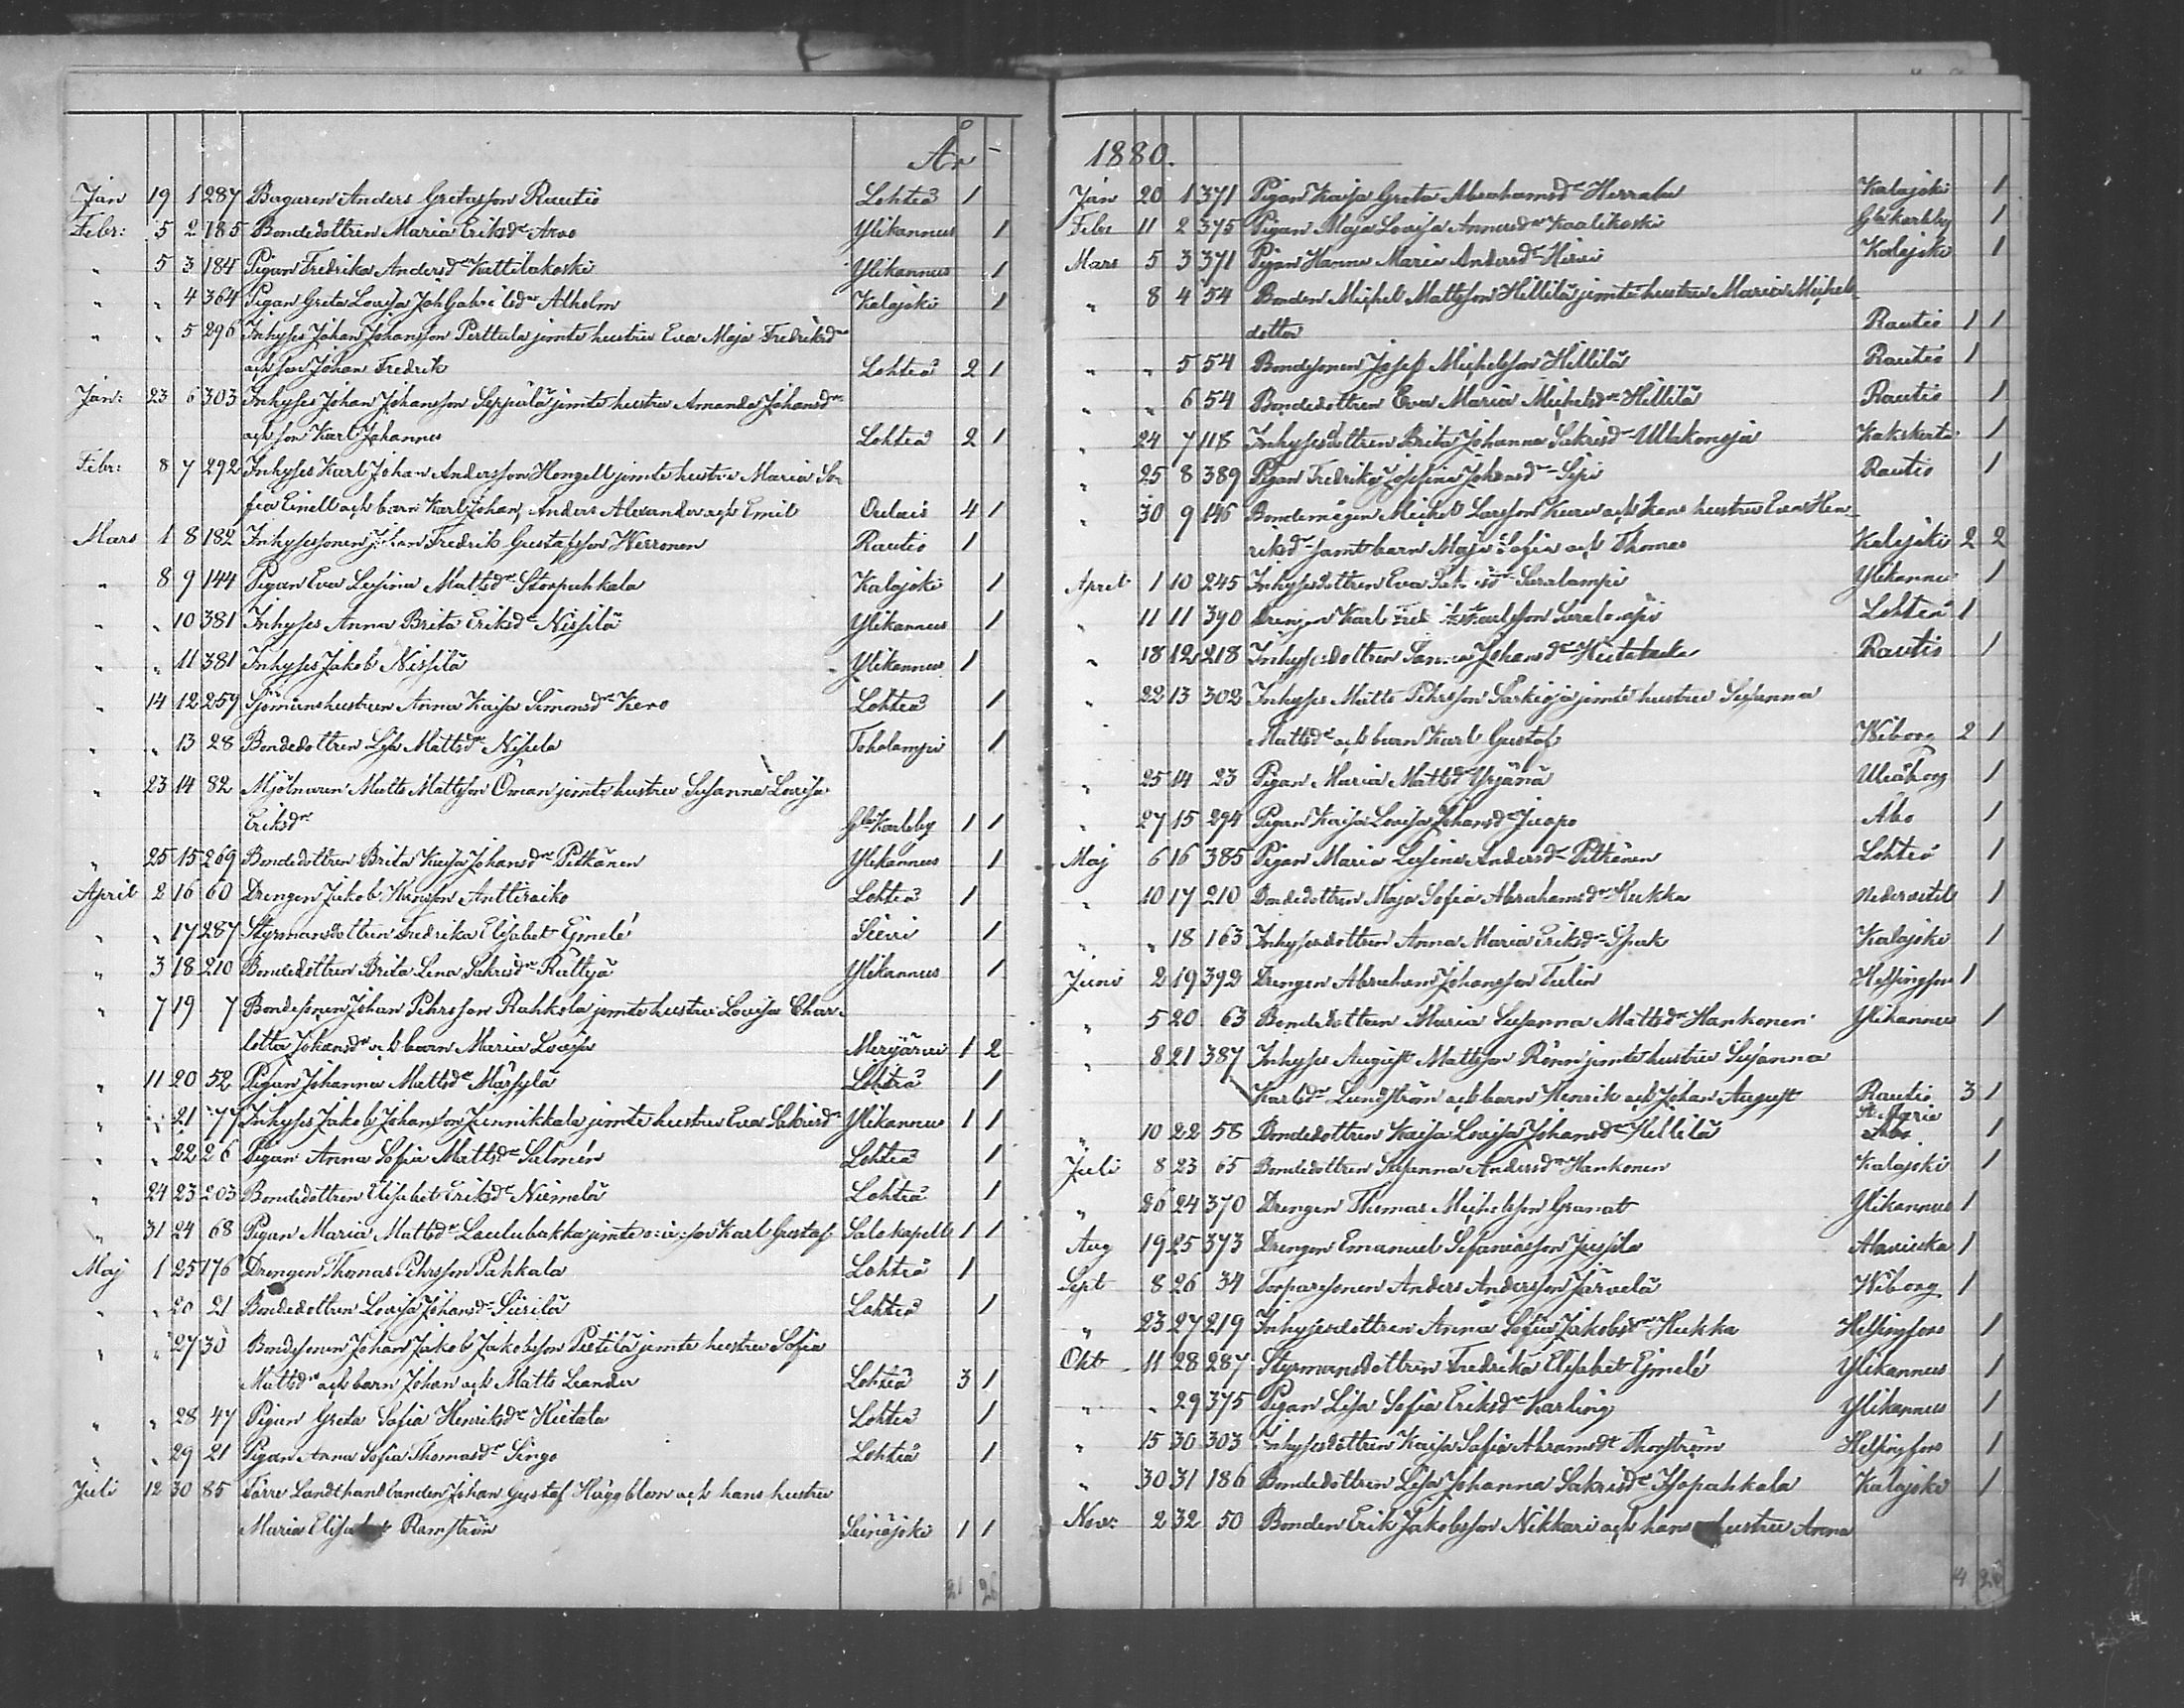 År
Jan 19 1 287 Bagaren Anders Gretasson Rautio Lohteå 1
Febr: 5 2 185 Bondedottren Maria Eriksdr Arvo Ylikannus 1
" 5 3 184 Pigan Fredrika Andersdr Kattilakoski Ylikannus 1
" " 4 364 Pigan Greta Lovisa Joh Gabrielsdr Alholm Kalajoki 1
" " 5 296 Inhyses Johan Johansson Perttula jemte hustru Eva Maja Fredriksdr
och son Johan Fredrik Lohteå 2 1
Jan: 23 6 303 Inhyses Johan Johansson Seppälä jemte hustru Amanda Johansdr
och son Karl Johannes Lohteå 2 1
Febr: 8 7 292 Inhyses Karl Johan Andersson Hongell jemte hustru Maria So-
fia Einell och barn Karl Johan, Anders Alexander och Emil Oulais 4 1
Mars 1 8 182 Inhysessonen Johan Fredrik Gustafsson Werronen Rautio 1
" 8 9 144 Pigan Eva Lesina Mattsdr Storpahkala Kalajoki 1
" " 10 381 Inhyses Anna Brita Eriksdr Nissilä Ylikannus 1
" " 11 381 Inhyses Jakob Nissilä Ylikannus 1
" 14 12 259 Sjömanshustrun Anna Kaisa Simonsdr Kero Lohteå 1
" " 13 28 Bondedottren Lisa Mattsdr Nisula Toholampi 1
" 23 14 82 Mjölnaren Matts Mattsson Öman jemte hustru Susanna Lovisa
Eriksdr Gla Karleby 1 1
" 25 15 269 Bondedottren Brita Kaisa Johansdr Pitkänen Ylikannus 1
April 2 16 60 Drengen Jakob Hansson Anttiroiko Lohteå 1
" " 17 287 Styrmansdottren Fredrika Elisabet Ejmelé Sievi 1
" 3 18 210 Bondedottren Brita Lena Sakrisdr Rättyä Ylikannus 1
" 7 19 7 Bondesonen Johan Pehrsson Ruhkala jemte hustru Lovisa Char-
lotta Johansdr och barn Maria Lovisa Merijärvi 1 2
" 11 20 52 Pigan Johanna Mattsdr Märsylä Lohteå 1
" " 21 77 Inhyses Jakob Johansson Junnikkala jemte hustru Eva Sakrisdr Ylikannus 1 1
" " 22 26 Pigan Anna Sofia Mattsdr Salmén Lohteå 1
" 24 23 203 Bondedottren Elisabet Eriksdr Niemelä Lohteå 1
" 31 24 68 Pigan Maria Mattsdr Laulubakka jemte o:ä: son Karl Gustaf Salo kapell 1 1
Maj 1 25 176 Drengen Thomas Pehrsson Pahkala Lohteå 1
" " 20 21 Bondedottren Lovisa Johansdr Siirilä Lohteå 1
" " 27 30 Bondesonen Johan Jakob Jakobsson Pietilä jemte hustru Sofia
Mattsdr och barn Johan och Matts Leander Lohteå 3 1
" " 28 47 Pigan Greta Sofia Henriksdr Hietala Lohteå 1
" " 29 21 Pigan Anna Sofia Thomasdr Singo Lohteå 1
Juli 12 30 85 Förre Landthandlanden Johan Gustaf Häggblom och hans hustru
Maria Elisabet Ramström Seinäjoki 1 1
21 26
1880.
Jan 20 1 371 Pigan Kaisa Greta Abrahamsdr Herrala Kalajoki 1
Febr 11 2 375 Pigan Maja Lovisa Annasdr Kaalikoski Glakarleby 1
Mars 5 3 371 Pigan Hanna Maria Andersdr Hirvi Kalajoki 1
" 8 4 54 Bonden Michel Mattsson Hillilä jemte hustru Maria Michels-
dotter Rautio 1 1
" " 5 54 Bondesonen Josef Michelsson Hillilä Rautio 1
" " 6 54 Bondedottren Eva Maria Michelsdr Hillilä Rautio 1
" 24 7 118 Inhysesdottren Brita Johanna Sakrisdr Ullakonoja Kakskerta 1
" 25 8 389 Pigan Fredrika Josefina Johansdr Sipi Rautio 1
" 30 9 146 Bondemågen Michel Larsson Kura och hans hustru Eva Hen-
riksdr samt barn Maja Sofia och Thomas Kalajoki 2 2
April 1 10 245 Inhysesdottren Eva Sakrisdr Saralampi Ylikannus 1
" 11 11 390 Drengen Karl Saralampi Lohteå 1
" 18 12 218 Inhysesdottren Sanna Johansdr Hietalade Rautio 1
" 22 13 302 Inhyses Matts Pehrsson Särkioja jemte hustru Susanna
Mattsdr och barn Karl Gustaf Wiborg 2 1
" 25 14 23 Pigan Maria Mattsdr Yrjänä Uleåborg 1
" 27 15 294 Pigan Kaisa Lovisa Johansdr Juopo Åbo 1
Maj 6 16 385 Pigan Maria Lusina Andersdr Pitkänen Lohteå 1
" 10 17 210 Bondedottren Maja Sofia Abrahamsdr Hukka Nedervetil 1
" " 18 163 Inhysesdottren Anna Maria Eriksdr Spak Kalajoki 1
Juni 2 19 392 Drengen Abraham Johansson Tulin Helsingfors 1
" 5 20 63 Bondedottren Maria Susanna Mattsdr Hankonen Ylikannus 1
" 8 21 387 Inhyses August Mattsson Rönn jemte hustru Susanna
Karlsdr Lundström och barn Henrik och Johan August Rautio 3 1
" 10 22 58 Bondedottren Kaisa Lovisa Johansdr Hillilä St. Marie Åbo 1
Juli 8 23 65 Bondedottren Susanna Andersdr Hankonen Kalajoki 1
" 26 24 370 Drengen Thomas Michelsson Granat Ylikannus 1
Aug 19 25 373 Drengen Emanuel Sefaniasson Jussila Alavieska 1
Sept 8 26 34 Torparesonen Anders Andersson Järvelä Wiborg 1
" 23 27 219 Inhysesdottren Anna Sofia Jakobsdr Hukka Helsingfors 1
Okt 11 28 287 Styrmansdottren Fredrika Elisabet Ejmelé Ylikannus 1
" " 29 375 Pigan Lisa Sofia Eriksdr Karling Ylikannus 1
" 15 30 303 Inhysesdottren Kaisa Sofia Abramsdr Thorström Helsingfors 1
" 30 31 186 Bondedottren Lisa Johanna Sakrisdr Isopahkala Kalajoki 1
Nov: 2 32 50 Bonden Erik Jakobsson Nikkari och hans hustru Anna